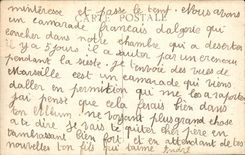 m'intéresse et passe le temps. Nous avons
un camarade français d'algrie qui
coucher dans notre chambre qui a deserter
il y a 5 jours il a sauter par un creneau
pendant la sieste. Je t'envoie des vues de
Marseille c'est un camarade qui viens
d'aller en permission qui me les a rapporté
j'ai pensé que cela ferais bien dans
ton album. ne voyant plus grand chose
a te dire je vais te quitter cher père en
t'embrassant bien fort et en attendant de tes
nouvelles ton fils qui t'aime André
CARTE POSTALE